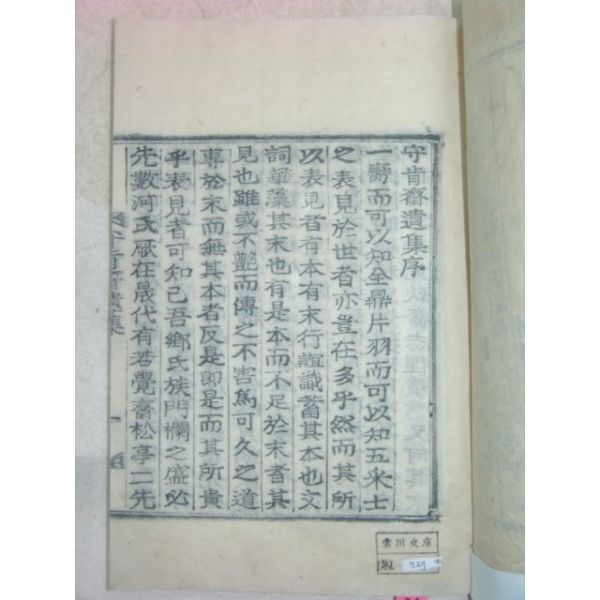 守肯齋遺集序
一臠而可以知全鼎片羽而可以知五采士
之表見於世者亦豈在多乎然而其所
以表見者有本有末行誼識蓄其本也文
詞華藻其末也有是本而不足於末者其
見也雖或不艶而傳之不害爲可久之道
專於末而無其本者反是卽是而其所貴
乎表見者可知已吾鄕氏族門欄之盛必
先數河氏厥在晟代有若覺齋松亭二先
守肯齋遺集
一
雲川文庫
727